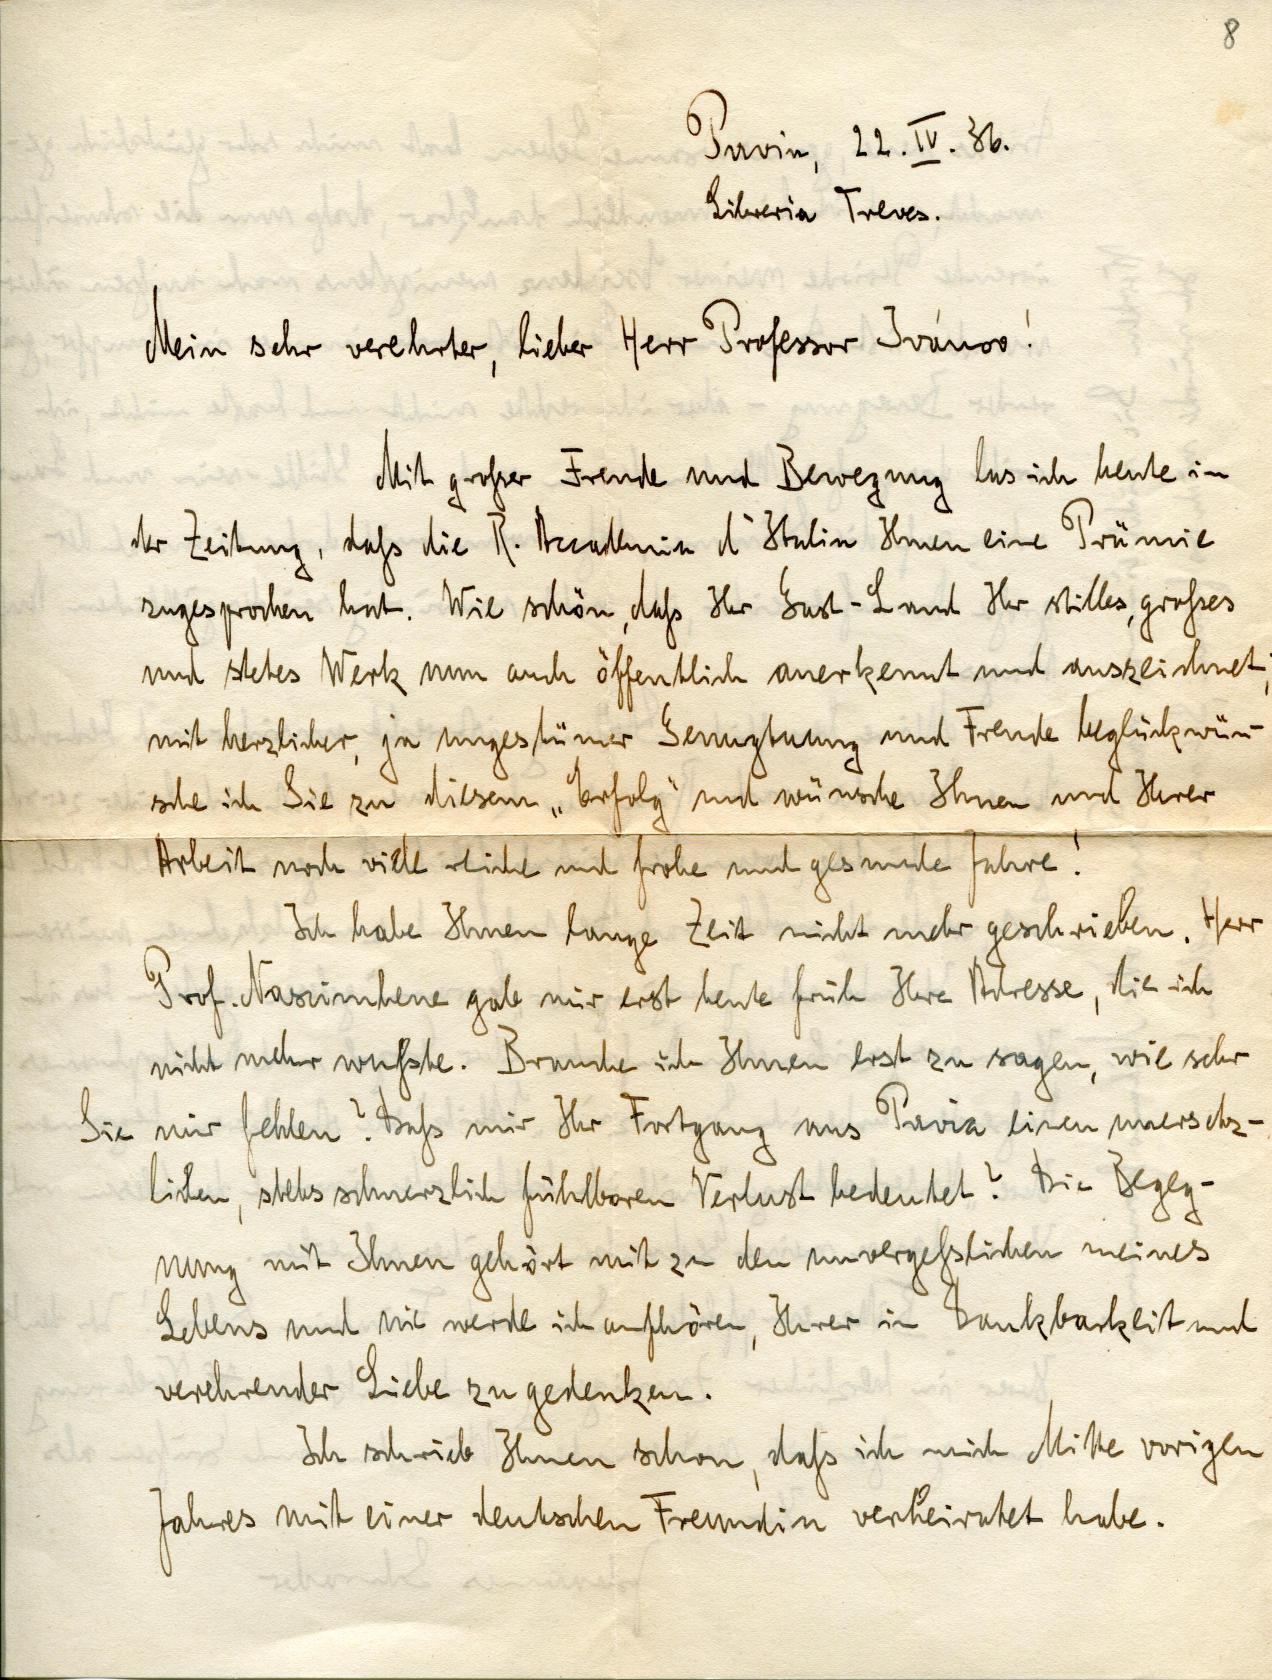 8
Pavia, 22. IV. 36.
Libreria Treves.
Mein sehr verehrter, lieber Herr Professor Ivánov!
Mit großer Freude und Bewegung las ich heute in
der Zeitung, daß die R. Accademia d'Italia Ihnen eine Prämie
zugesprochen hat. Wie schön, daß Ihr Gast-Land Ihr stilles, großes
und stetes Werk nun auch öffentlich anerkennt und auszeichnet;
mit herzlicher, ja ungestümer Genugtuung und Freude beglückwün-
sche ich Sie zu diesem „Erfolg“ und wünsche Ihnen und Ihrer
Arbeit noch viele reiche und frohe und gesunde Jahre!
Ich habe Ihnen lange Zeit nicht mehr geschrieben. Herr
Prof. Nascimbene gab mir erst heute früh Ihre Adresse, die ich
nicht mehr wußte. Brauche ich Ihnen erst zu sagen, wie sehr
Sie mir fehlen? Daß mir Ihr Fortgang aus Pavia einen unersetz-
lichen, stets schmerzlich fühlbaren Verlust bedeutet? Die Begeg-
nung mit Ihnen gehört mit zu den unvergeßlichen meines
Lebens und nie werde ich aufhören, Ihrer in Dankbarkeit und
verehrender Liebe zu gedenken.
Ich schrieb Ihnen schon, daß ich mich Mitte vorigen
Jahres mit einer deutschen Freundin verheiratet habe.